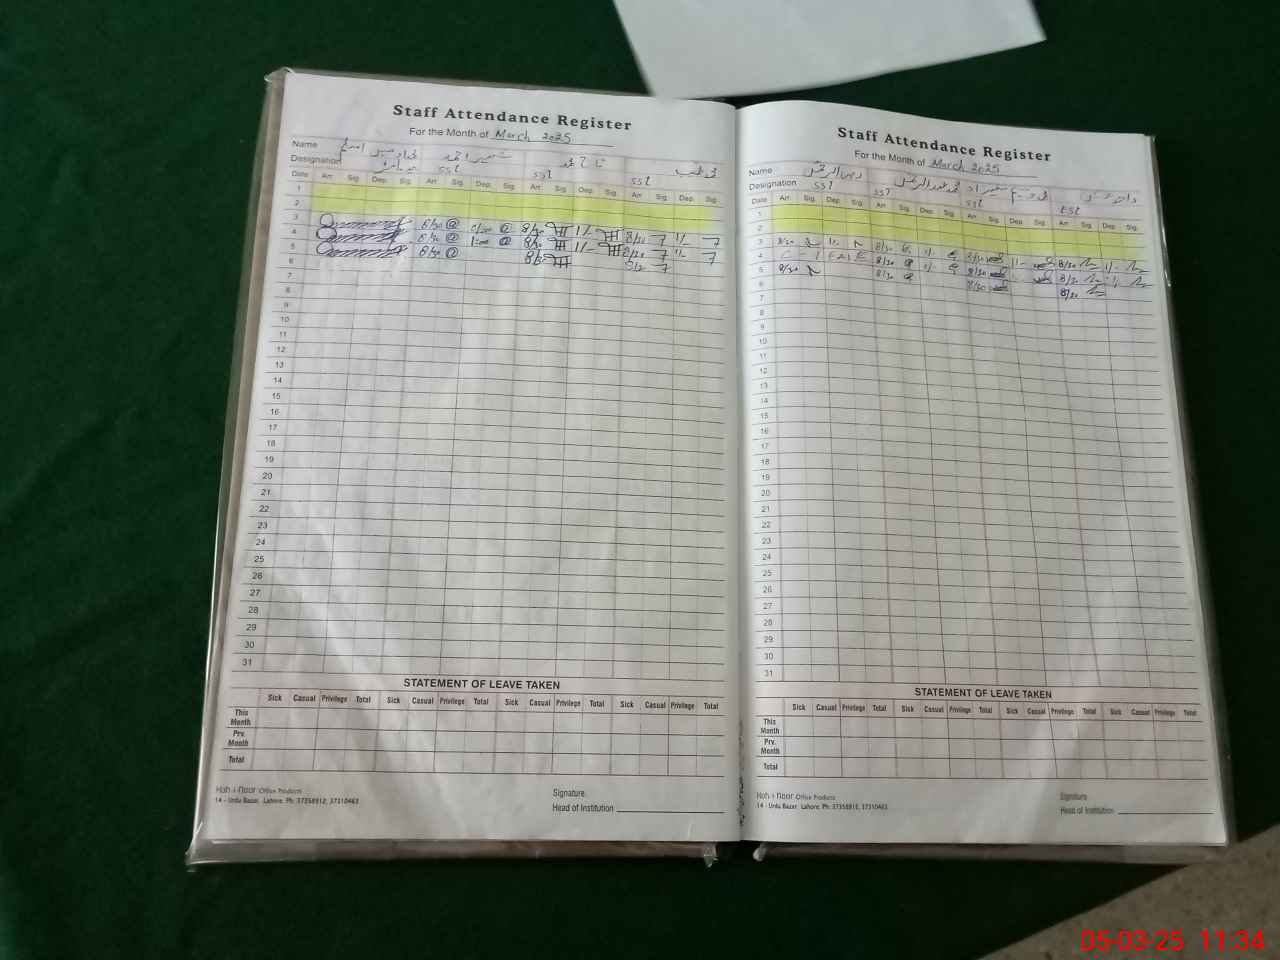 Staff Attendance Register
For the Month of March 2025
Name
Designation SST SST SST
Date Arr. Sig. Dep. Sig. Arr. Sig. Dep. Sig. Arr. Sig. Dep. Sig. Arr. Sig. Dep. Sig.
1
2
3 8/20 8/20 1/- 8/20 1/-
4 8/20 1:00 8/20 1/- 8/20 1/-
5 8/20 8/20 8/20
6
7
8
9
10
11
12
13
14
15
16
17
18
19
20
21
22
23
24
25
26
27
28
29
30
31
STATEMENT OF LEAVE TAKEN
Sick Casual Privilege Total Sick Casual Privilege Total Sick Casual Privilege Total Sick Casual Privilege Total
This Month
Prv. Month
Total
Signature
Head of Institution
Koh-i-Noor Office Products
14 - Urdu Bazar, Lahore. Ph: 37358912, 37310463
Staff Attendance Register
For the Month of March 2025
Name
Designation SST SST SST EST
Date Arr. Sig. Dep. Sig. Arr. Sig. Dep. Sig. Arr. Sig. Dep. Sig. Arr. Sig. Dep. Sig.
1
2
3 8/20 1/- 8/20 1/- 8/20 1/- 8/20 1/-
4 C - L E A V E 8/20 1/- 8/20 8/20 1/-
5 8/20 8/20 8/20 8/20
6
7
8
9
10
11
12
13
14
15
16
17
18
19
20
21
22
23
24
25
26
27
28
29
30
31
STATEMENT OF LEAVE TAKEN
Sick Casual Privilege Total Sick Casual Privilege Total Sick Casual Privilege Total Sick Casual Privilege Total
This Month
Prv. Month
Total
Signature
Head of Institution
Koh-i-Noor Office Products
14 - Urdu Bazar, Lahore. Ph: 37358912, 37310463
05-03-25 11:34